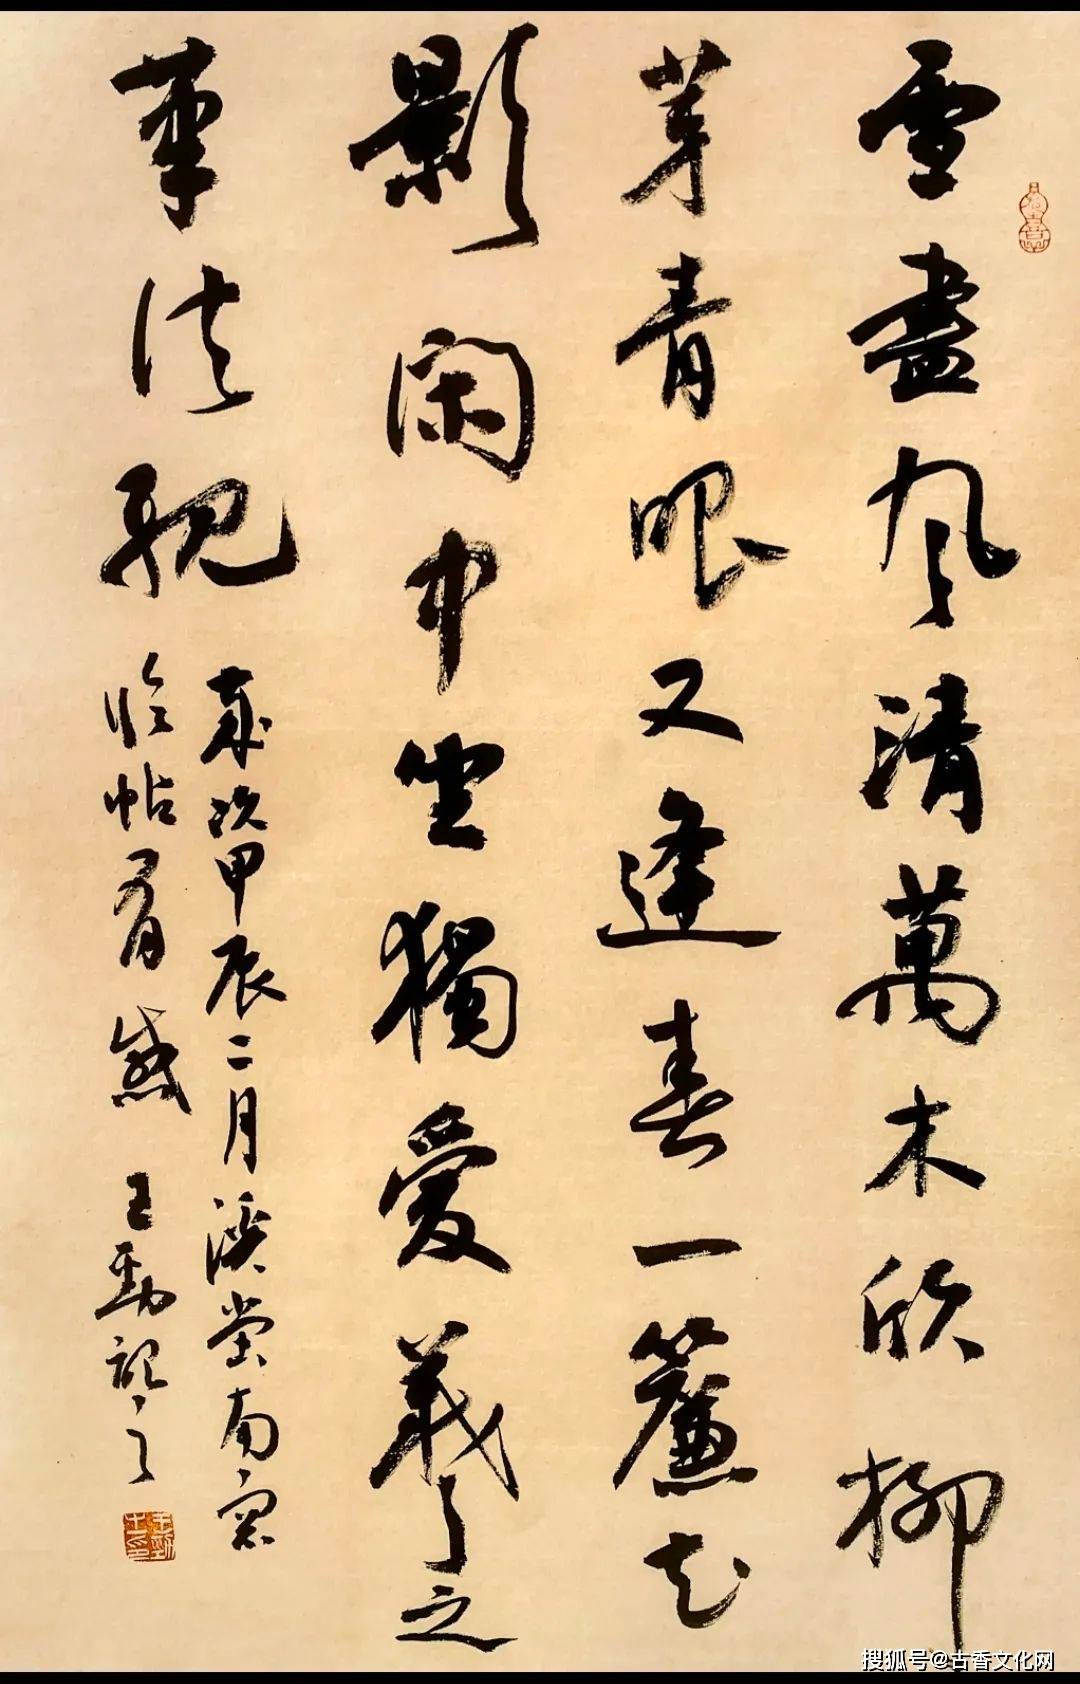 雪盡風清萬木欣柳
芽青眼又逢春一簾花
影閑中坐獨愛羲之
筆法親
歲次甲辰二月溪堂南窗
臨帖有感 王勁記之
搜狐号@古香文化网